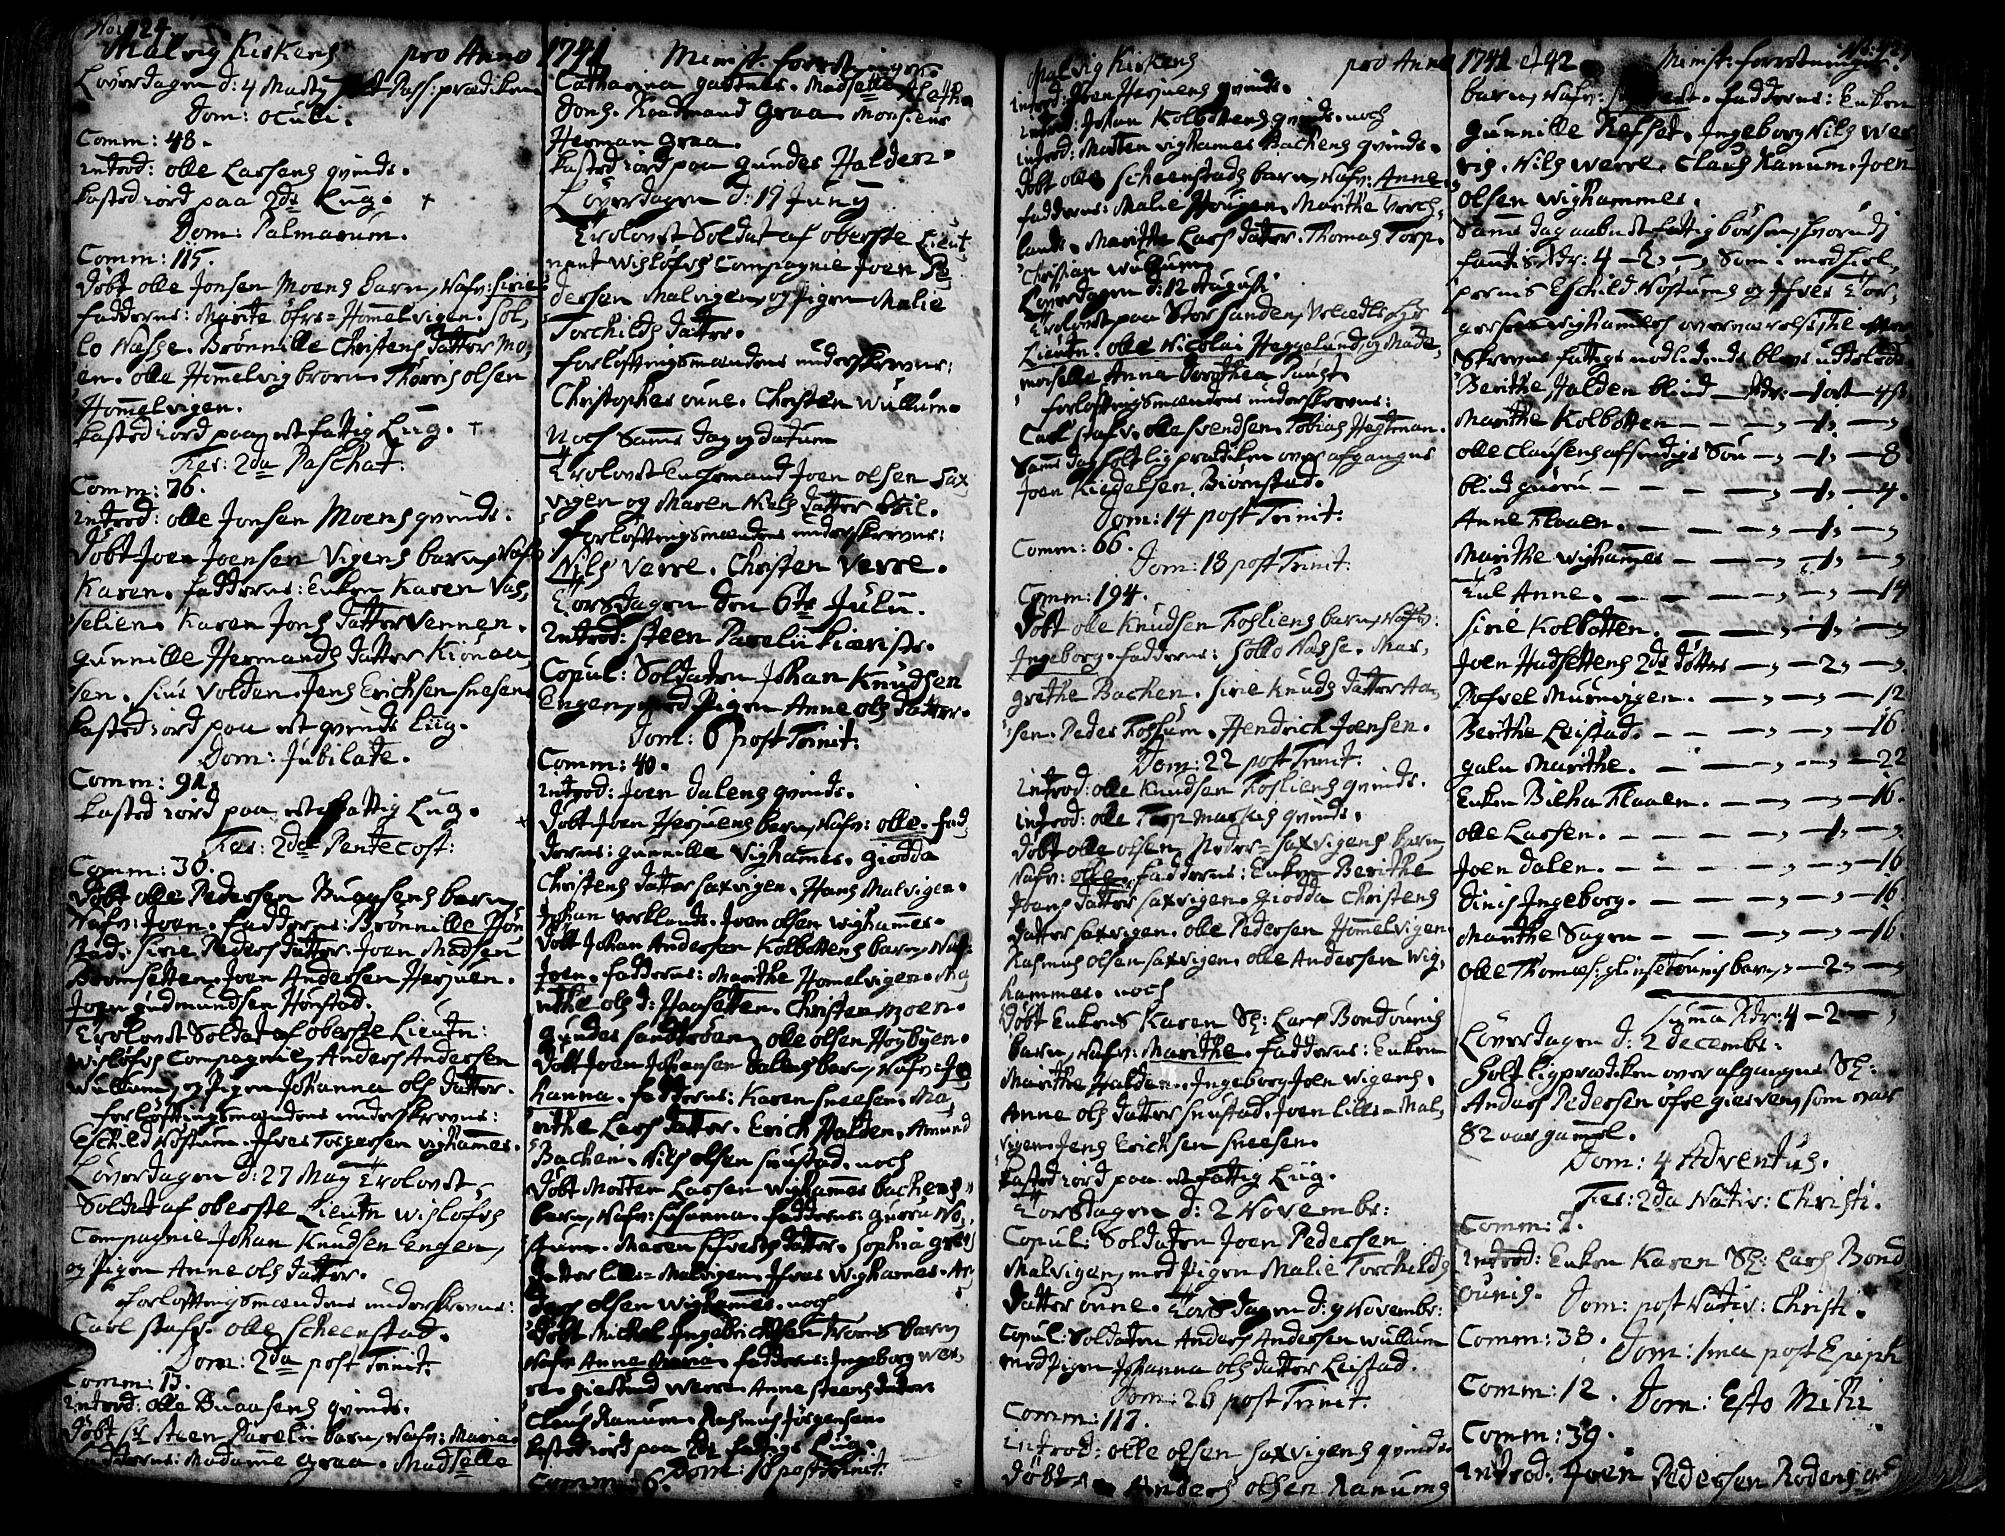 Malvig Kirkens pro Anno
Löverdagen d: 4 Marty holt Pass: prædiken
Dom: Oculi.
Comm: 48.
Introd: olle Larsens qvinde.
kasted iord paa 2de Liig. +
Dom: Palmarum.
Comm: 115.
Döbt olle Jonsen Moens barn, Nafn: Sirie
fadderne: Marite öfre=Hommelvigen. Sol,
lo Næsse. Brönnille Christens datter Mo,
en. olle Hommelvigbroen. Thorris olsen
Hommelvigen.
kasted iord paa et fattig Liig. +
Fer: 2da Paschat:
Comm: 76.
Introd: olle Jonsen Moens qvinde.
Döbt Joen Joensen Vigens barn, Nafn
Karen. fadderne: Enken Karen Vas,
selien. Karen Jons datter Vennen.
Gunnille Hermands datter Kionaa,
sen. Siri Volden. Jens Erichsen Sneesen
kasted iord paa et qvinde Liig.
Dom: Jubilate.
Comm: 91.
kasted iord paa et fattig Liig.
Fer: 2da Pentecost:
Comm: 30.
Döbt olle Pedersen Buaasens barn,
Nafn: Joen. fadderne: Brönnille Hön
stad. Sirie Peders datter. Joen Madsen
Bromsetten. Joen Andersen Herjuen.
Joen Gudmundsen Hönstad.
Trolovet Soldat af oberste Lieutn:
Wislöfs Compagnie, Anders Andersen
Wullum, og Pigen Johanna ols datter.
forlöftingsmændene underskrevne:
Eschild Nöstum. Ifver Torgersen vighammer.
Löverdagen d: 27 May Trolovet
Soldat af oberste Lieutn Wislöfs
Compagnie Johan Knudsen Engen,
og Pigen Anne ols datter.
forlöftingsmændene underskrevne:
Carl Stafr. olle Scheenstad.
Dom: 2da post Trinit:
Comm: 13.
Introd: olle Buaasens qvinde.
Döbt Sr Steen Parelii barn, Nafn: Maria.
fadderne: Madamme Graa. Madselle
1741 Minist: forretninger.
Catharina Gartner. Madselle
Dons. Raadmand Graa. Monsieur
Herman Graa.
kasted iord paa Gunder Halden.
Löverdagen d: 19 Juny
Trolovet Soldat af oberste Lieut,
nant Wislöfs Compagnie Joen Pe,
dersen Malvigen, og Pigen Malie
Torchilds datter.
forlöftingsmændene underskrevne:
Christopher onne. Christen Wullum.
Noch Samme dag og datum
Trolovet Enchemand Joen olsen Sax,
vigen og Maren Niels datter
forlöftingsmændene underskrevne:
Nils Verre. Christen Verre.
Torsdagen den 6te Julii.
Introd: Steen Parelii kiæriste.
Copul: Soldaten Johan Knudsen
Engen, med Pigen Anne ols datter.
Dom: 6 post Trinit:
Comm: 40.
Introd: Joen dalens qvinde.
Döbt Joen Herjuens barn, Nafn: olle. fad,
derne: Gunnille Vighammer. Giödda
Christens datter Saxvigen. Hans Malvigen.
Johan Verklands. Joen olsen Wighammer.
Döbt Johan Andersen Kolbottens barn, Nafn:
Joen. fadderne: Marithe Homelvigen. Ma,
rithe ols d: Haasetten. Christen Moen.
Gunder Sandtröen, olle olsen Höybyen.
Döbt Joen Johansen Dalens barn, Nafn: Jo,
hanna. fadderne: Karen Sneesen. Ma,
rithe Lars datter. Erich Halden. Amund
Bachen. Nils olsen Snustad. noch
Döbt Morten Larsen Wighammer bachens
barn, Nafn: Susanna. fadderne: Guru Nö,
stum. Maren Ifvers datter. Sophia Grers
datter Lille=Malvigen. Ifver Wighamer. An,
ders olsen Wighamer. noch
Döbt Michel Ingebrichtsen Troens barn
Nafn Anne Maria. fadderne: Ingeborg Wer,
re. Giertrud Werre. Anne Steens datter
Claus Ranum. Rasmus Jörgensen.
kasted iord paa 2de fattige Liig.
Dom: 10 post Trinit:
Comm: 6.
Malvig Kirkens pro Anno
Introd: Joen Herjuens qvinde.
Introd: Johan Kolbottens qvinde. noch
Introd: Morten vighamer Bachens qvinde.
Döbt olle Scheenstads barn, Nafn: Anne.
fadderne: Malie Hougen. Marithe Verch,
lands. Marithe Lars datter. Thomas Torp.
Christian Wullum.
Löverdagen d: 12 Augusti
Trolovet paa Stor Sanden, Velædle Hr
Lieutn: olle Nicolai Heggelund, og Made,
moiselle Anna Dorothea Paust.
forlöftingsmændene underskrevne:
Carl Stafr. olle Svendsen. Tobias Hegtman.
Samme dag holt ligprædiken over afgangne
Joen Kieldsen Biörnstad.
Dom: 14 post Trinit:
Comm: 66.
Dom: 18 post Trinit:
Comm: 194.
Döbt olle Knudsen Fosliens barn, Nafn:
Ingeborg. fadderne: Sollo Næsse. Mar,
grethe Bachen. Sirie Knuds datter Aa,
sen. Peder Fossum. Hendrich Joensen.
Dom: 22 post Trinit.
Introd: olle Knudsen Fosliens qvinde.
Introd: olle Torp Marsius qvinde.
Döbt olle olsen Neder=Saxvigens barn,
Nafn: olle. fadderne: Enken Berithe
Hans datter Saxvigen. Giödda Christens
datter Saxvigen. olle Pedersen Hommelvigen.
Rasmus olsen Saxvigen. olle Andersen Wig,
hammer. noch
Döbt Enkens Karen Sl: Lars Bondöunis
barn, Nafn: Marithe. fadderne: Enken
Marithe Halden. Ingeborg Joen Wigens.
Anne ols datter Snustad. Joen Lille=Mal,
vigen. Jens Erichsen Sneesen.
kasted iord paa et fattig Liig.
Torsdagen d: 2 Novembr:
Copul: Soldaten Joen Pedersen
Malvigen, med Pigen Malie Torchilds
datter onne. Torsdagen d: 9 Novembr:
Copul: Soldaten Anders Andersen Wullum
med Pigen Johanna ols datter Leistad.
Dom: 26 post Trinit:
Comm: 117.
Introd: olle olsen Saxvigens qvinde.
Döbt Anders olsen Ranums
1741 et 42. Minist: forretninger.
barn, Nafn: fadderne: Enken
Gunnille Refset. Ingeborg Nils Wer
ris. Nils Werre. Claus Ranum. Joen
olsen Wighammer.
Samme dag aabnet fattig bössen, hvorudj
fantis Rdr: 4 - 2 -, som i medhiel,
pernes Eschild Nöstums og Ifver Tor,
gersen Wighammers overværelse, til efter
skrevne fattige nödlidende blev uddelede.
Berithe Halden blind — Rdr: — 1 ort — 4 s
Marithe Kolbotten — — — 1 —
olle Clausens afsindige Sön — 1 — 8.
blind Guru — — — 1 — 4.
Anne Flaaen. — — — 1 —
Marithe Wighammer — — 1 —
Tul Anne. — — — 14
Sirie Kolbotten. — — 1 —
Joen Hudsettens 2de döttre — 2 —
Rafvel Mureviqen. — — — 12
Berithe Leistad. — — — 16.
galn Marithe. — — — 22
Enken Birthe Flaaen. — — — 16.
olle Larsen. — — — 1 —
Joen dalen. — — — 16
dinis Ingeborg. — — — 16.
Marithe Sagen — — — 16.
olle Thomæs: Glinsetounis barn, — 2 —
Summa Rdr: 4 — 2 —
Löverdagen d: 2 decembr:
Holt ligprædiken over afgangne Sl:
Anders Pedersen öfre gierven, som var
82 aar gammel.
Dom: 4 Adventus.
Fer: 2da Nativ: Christi.
Comm: 7.
Introd: Enken Karen Sl: Lars Bond
öunis.
Dom: post Nativ: Christi.
Comm: 38.
Dom: 1ma post Epiph
Comm: 12.
Dom: Esto Mihi
Comm: 39.
Introd: Joen Pedersen Rodens qv: